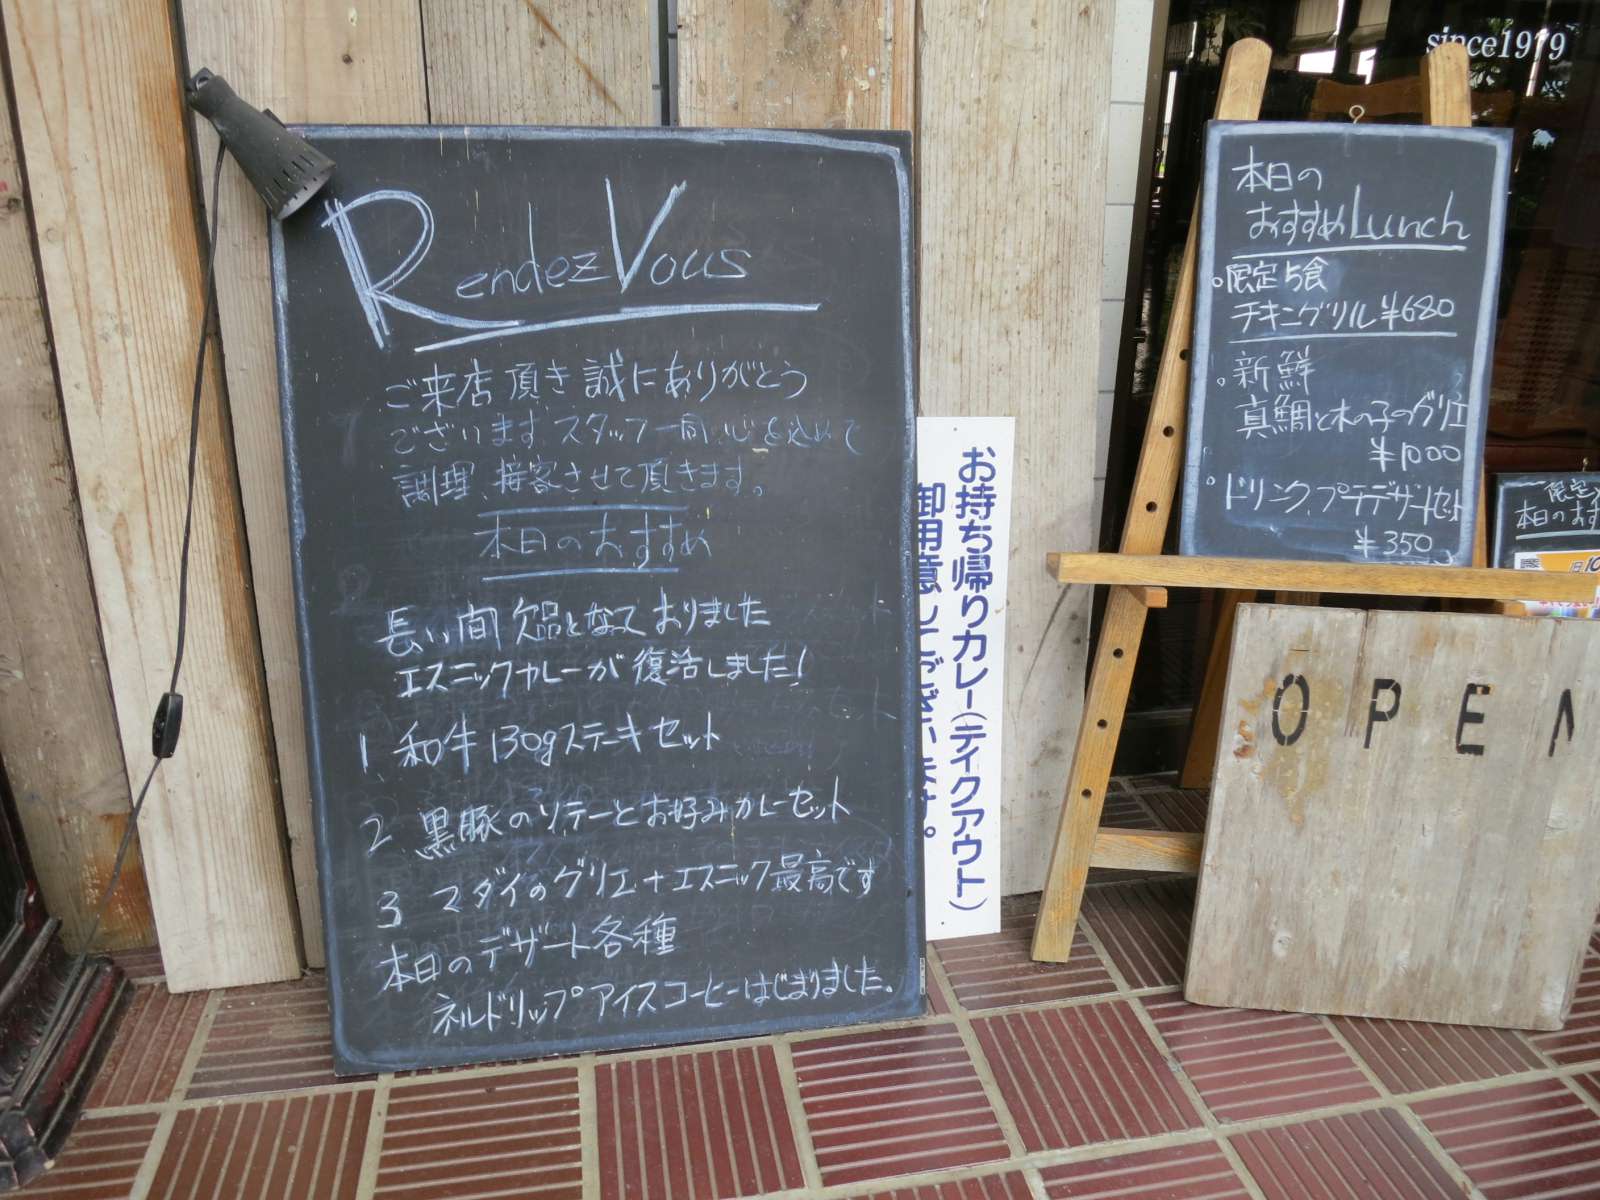 RendezVous
ご来店頂き誠にありがとう
ございます。スタッフ一同心を込めて
調理、接客させて頂きます。
本日のおすすめ
長い間欠品となっておりました
エスニックカレーが復活しました!
1 和牛130gステーキセット
2 黒豚のソテーとお好みカレーセット
3 マダイのグリエ+エスニック最高です
本日のデザート各種
ネルドリップアイスコーヒーはじまりました。
お持ち帰りカレー(テイクアウト)
御用意してございます。
since1979
本日の
おすすめLunch
限定5食
チキングリル ¥680
新鮮
真鯛と木の子のグリエ
¥1000
ドリンク、プチデザートセット
¥350
限定
本日のおす
OPEN